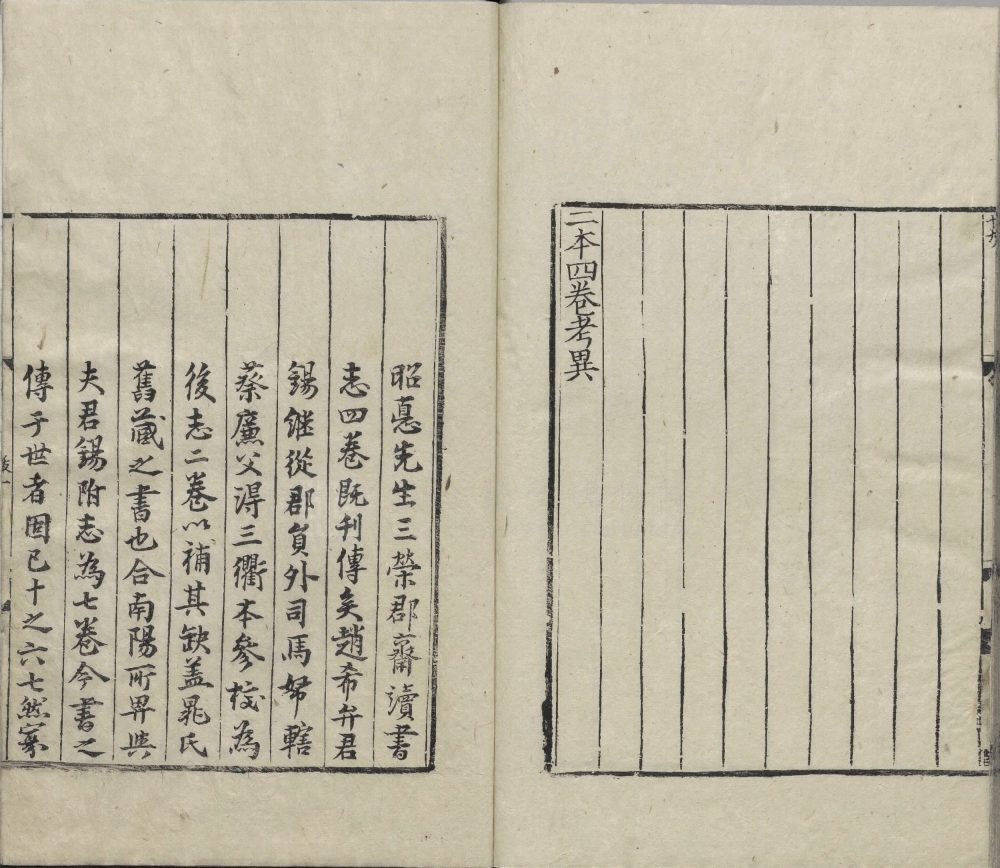 二本四卷考異
昭惪先生三榮郡齋讀書
志四卷既刊傳矣趙希弁君
錫繼從郡貟外司馬帑轄
蔡廉父淂三衢本參校為
後志二卷以補其缺盖晁氏
舊藏之書也合南陽所畀與
夫君錫附志為七卷今書之
傳于世者固已十之六七然寀